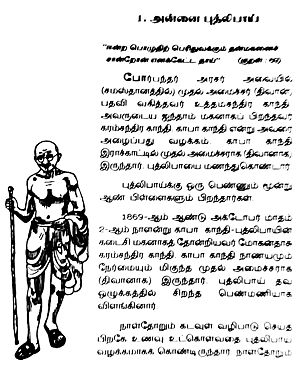 1. அன்னை புத்லிபாய்
"ஈன்ற பொழுதிற் பெரிதுவக்கும் தன்மகனைச்
சான்றோன் எனக்கேட்ட தாய்" (குறள் - 69)
போர்பந்தர் அரசர் அவையில்
(சமஸ்தானத்தில்) முதல் அமைச்சர் (திவான்)
பதவி வகித்தவர் உத்தமசந்திர காந்தி.
அவருடைய ஐந்தாம் மகனாகப் பிறந்தவர்
கரம்சந்திர காந்தி. காபா காந்தி என்று அவரை
அழைப்பது வழக்கம். காபா காந்தி
இராச்காட்டில் முதல் அமைச்சராக (திவானாக),
இருந்தார். புத்லிபாயை மணந்துகொண்டார்.
புத்லிபாய்க்கு ஒரு பெண்ணும் மூன்று
ஆண் பிள்ளைகளும் பிறந்தார்கள்.
1869-ஆம் ஆண்டு அக்டோபர் மாதம்
2-ஆம் நாளன்று காபா காந்தி-புத்லிபாயின்
கடைசி மகனாகத் தோன்றியவர் மோகன்தாசு
கரம்சந்திர காந்தி. காபா காந்தி நாணயமும்
நேர்மையும் மிகுந்த முதல் அமைச்சராக
(திவானாக) இருந்தார். புத்லிபாய் தவ
ஒழுக்கத்தில் சிறந்த பெண்மணியாக
விளங்கினார்.
நாள்தோறும் கடவுள் வழிபாடு செய்த
பிறகே உணவு உட்கொள்வதை புத்லிபாய்
வழக்கமாகக் கொண்டிருந்தார். நாள்தோறும்